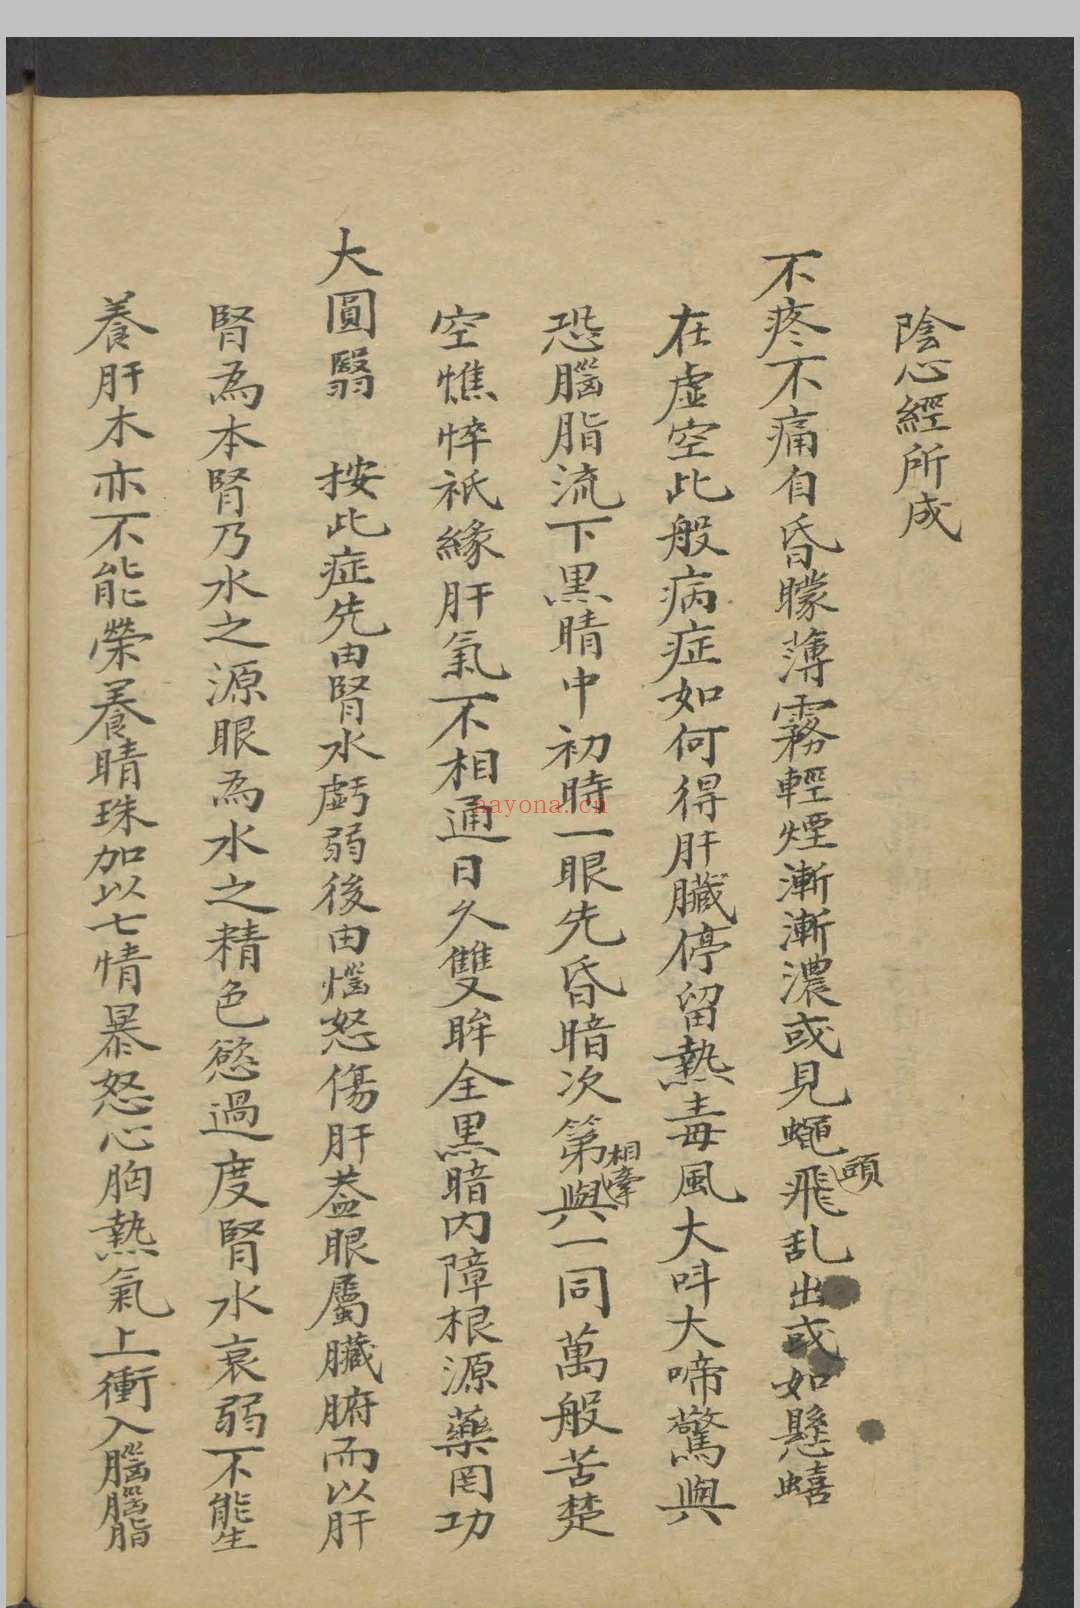 陰心經所成
不疼不痛自昏矇薄霧輕煙漸漸濃或見蠅飛乱出或如懸蟢
頭
在虛空此般病症如何得肝臟停留熱毒風大呌大啼驚與
恐腦脂流下黑睛中初時一眼先昏暗次第與一同萬般苦楚
相牽
空憔悴祇緣肝氣不相通日久雙眸全黒暗内障根源藥罔功
大圓翳 按此症先由腎水虧弱後由惱怒傷肝葢眼屬臟腑而以肝
腎為本腎乃水之源眼為水之精色慾過度腎水衰弱不能生
養肝木亦不能榮養睛珠加以七情暴怒心胸熱氣上衝入腦腦脂
nayona.cn